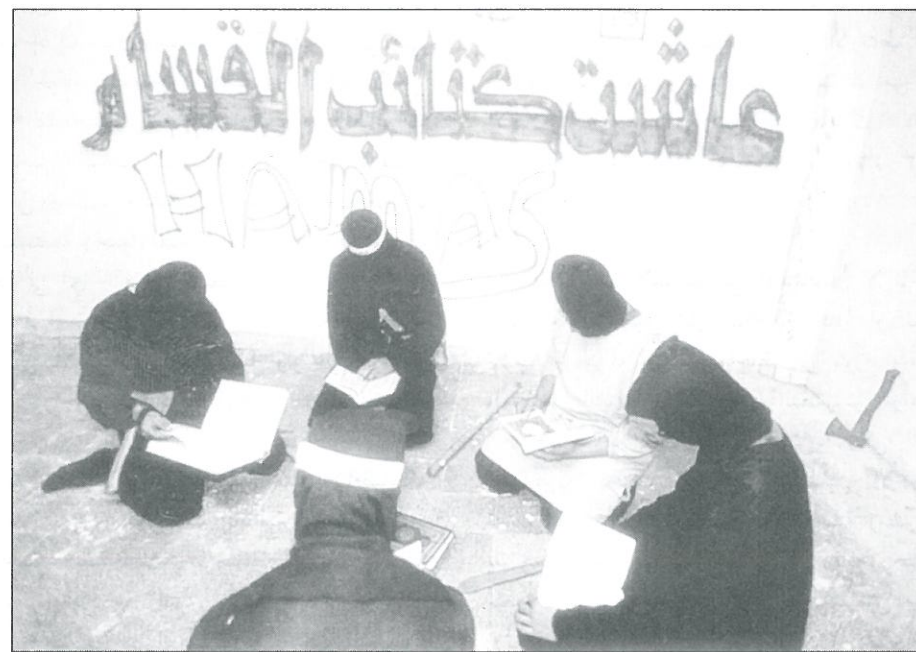 عاشت كتائب القسام
HAMAS